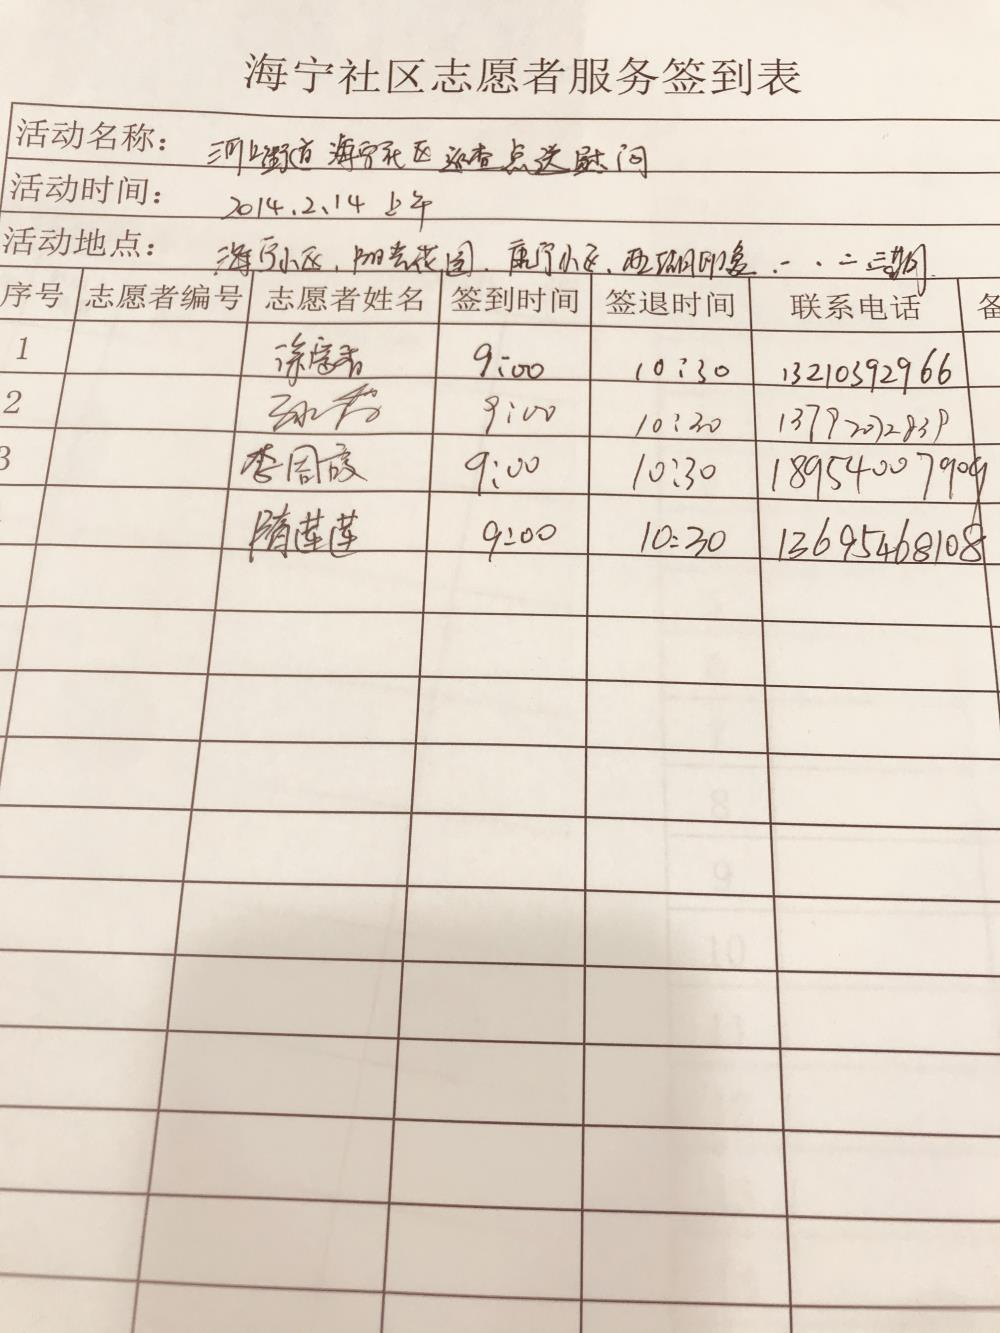 海宁社区志愿者服务签到表
活动名称: 河口街道海宁社区巡查点送慰问
活动时间: 2014.2.14 上午
活动地点: 海宁小区、阳光花园、康宁小区、一、二三期
序号 志愿者编号 志愿者姓名 签到时间 签退时间 联系电话 备
1 9:00 10:30 13210392966
2 9:00 10:30 13792072839
3 李周霞 9:00 10:30 18954007909
隋莲莲 9:00 10:30 13695468108
8
9
10
11